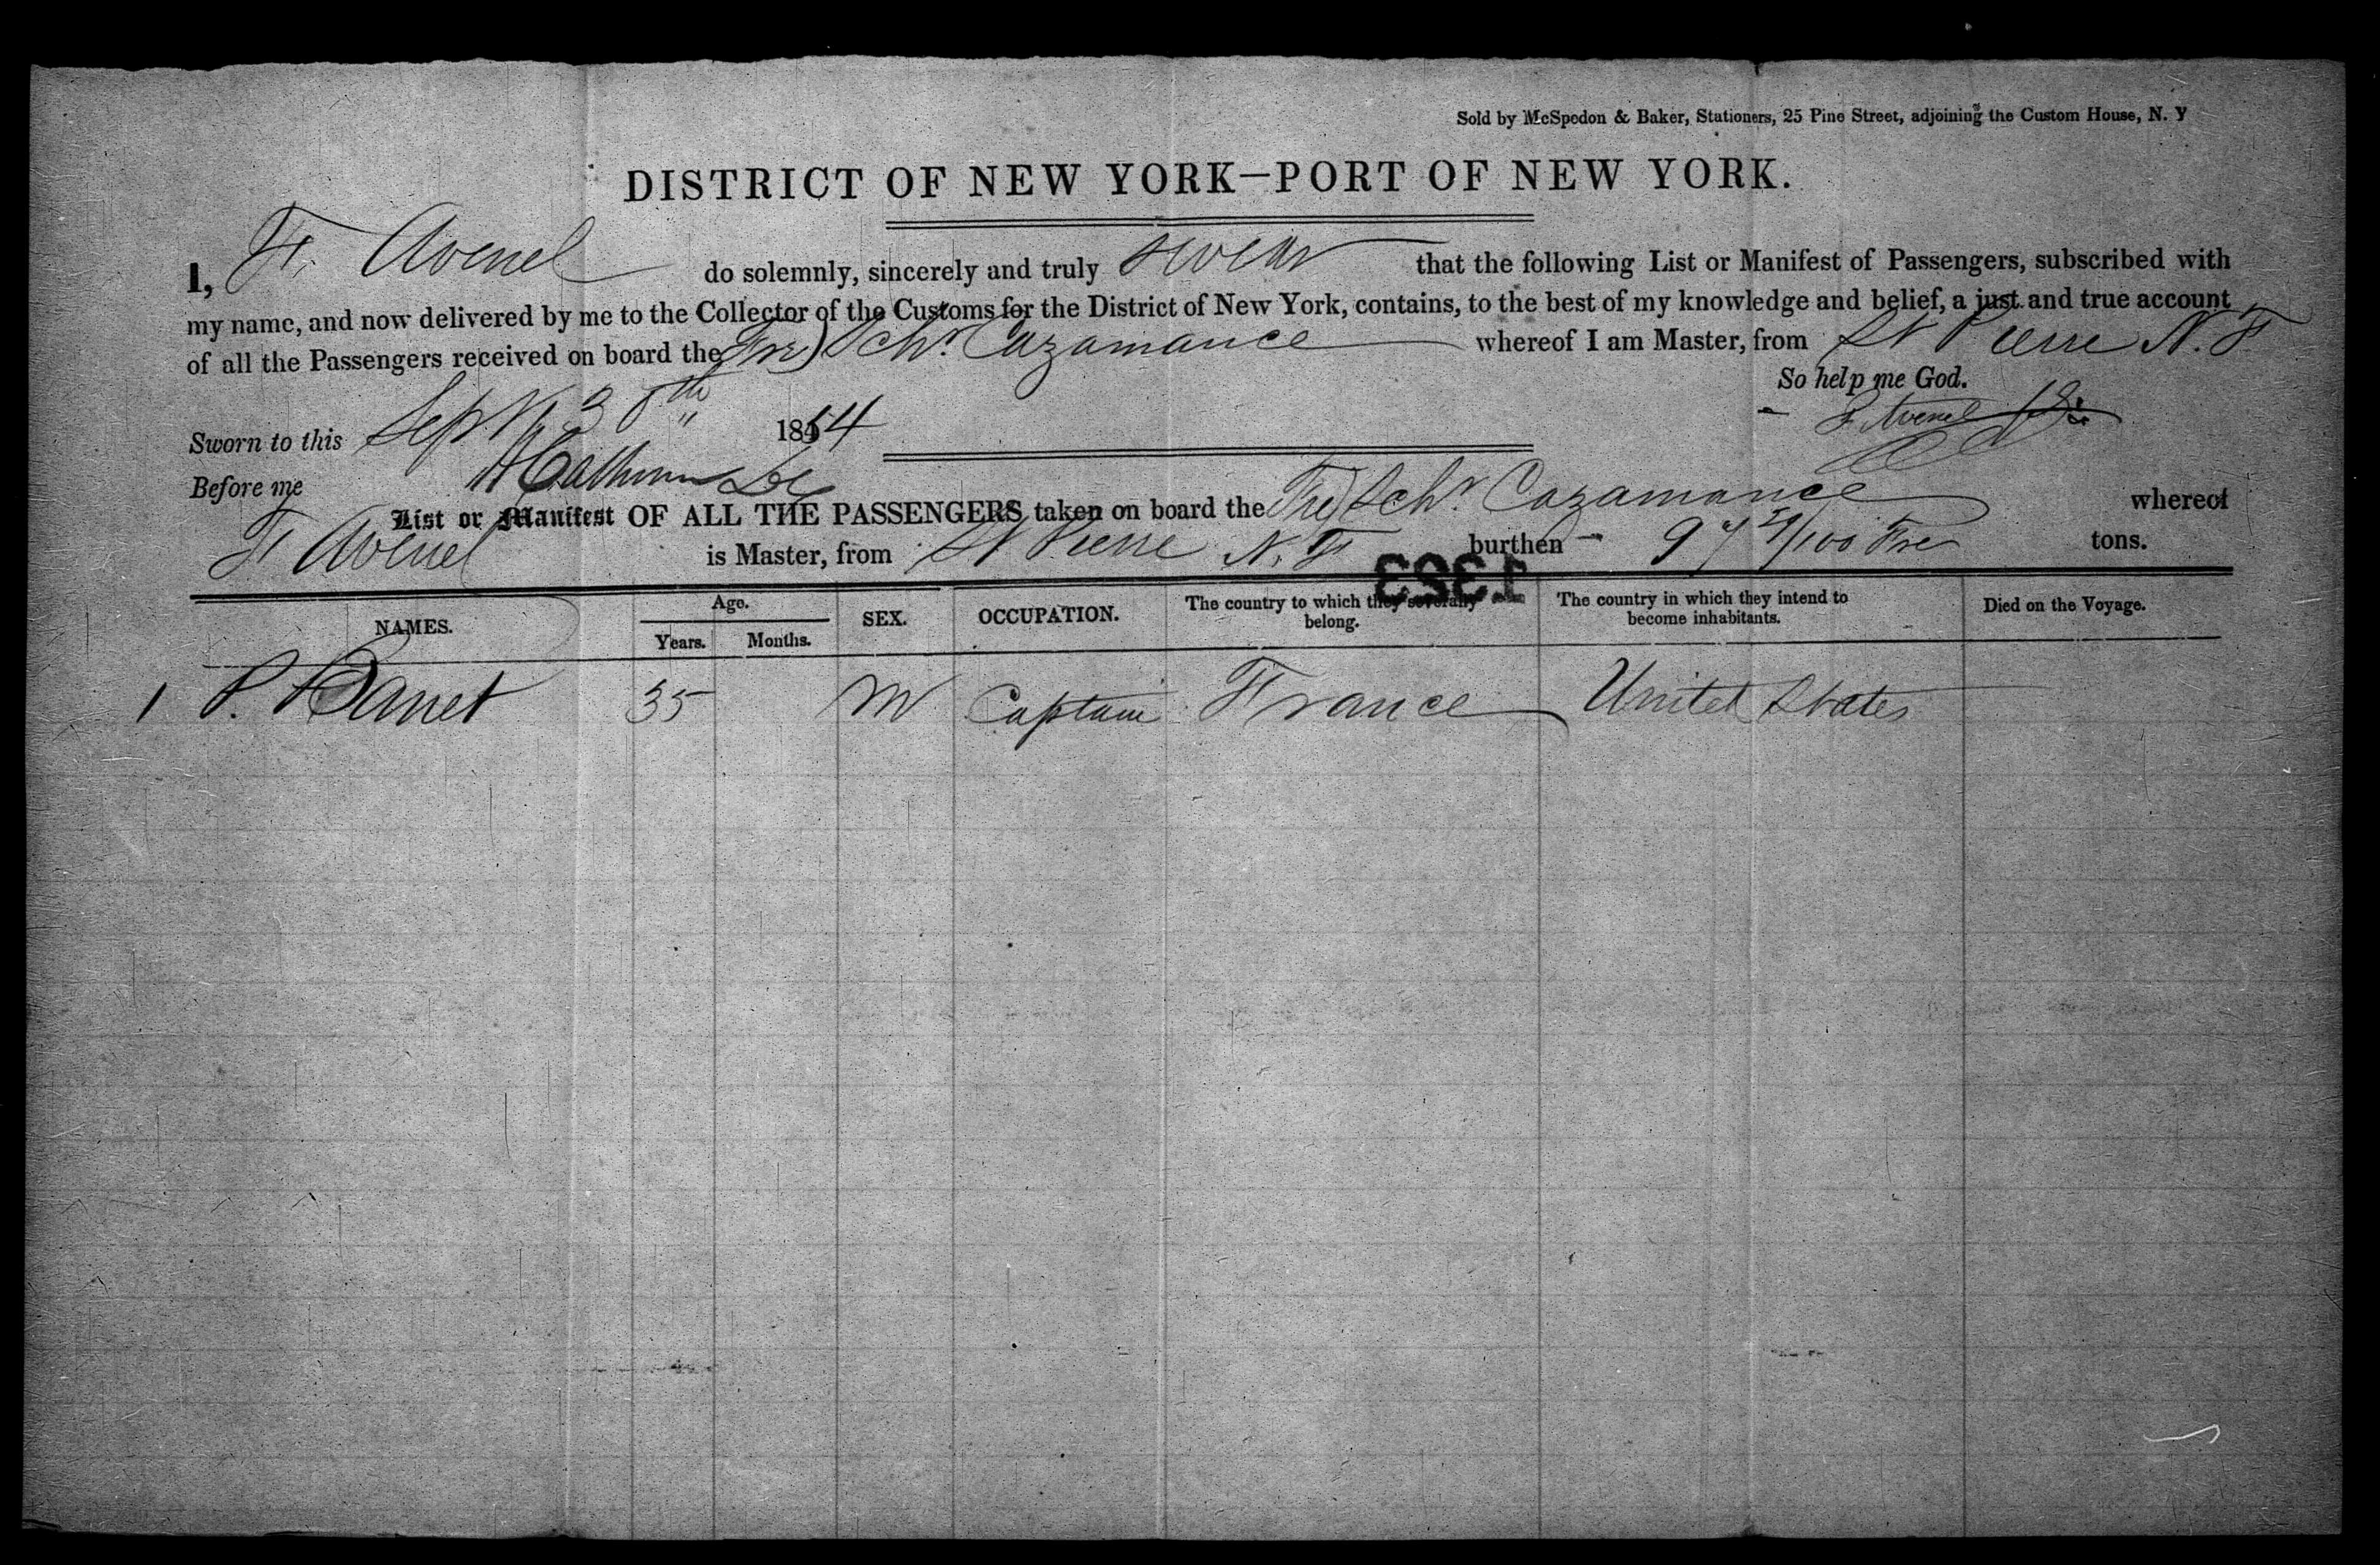 Sold by McSpedon & Baker, Stationers, 25 Pine Street, adjoining the Custom House, N. Y
DISTRICT OF NEW YORK—PORT OF NEW YORK.
I, F. Avenel do solemnly, sincerely and truly swear that the following List or Manifest of Passengers, subscribed with
my name, and now delivered by me to the Collector of the Customs for the District of New York, contains, to the best of my knowledge and belief, a just and true account
of all the Passengers received on board the (Fre) Schr. Cazamance whereof I am Master, from St Pierre N. F.
So help me God.
Sworn to this Sept 30th 1854
F Avenel
Before me
List or Manifest OF ALL THE PASSENGERS taken on board the (Fre) Schr. Cazamance whereof
F Avenel is Master, from St Pierre N. F burthen 97 /100 Fre tons.
1393
NAMES. Age. Years. Months. SEX. OCCUPATION. The country to which they severally belong. The country in which they intend to become inhabitants. Died on the Voyage.
1 P. Barret 35 M Captain France United States